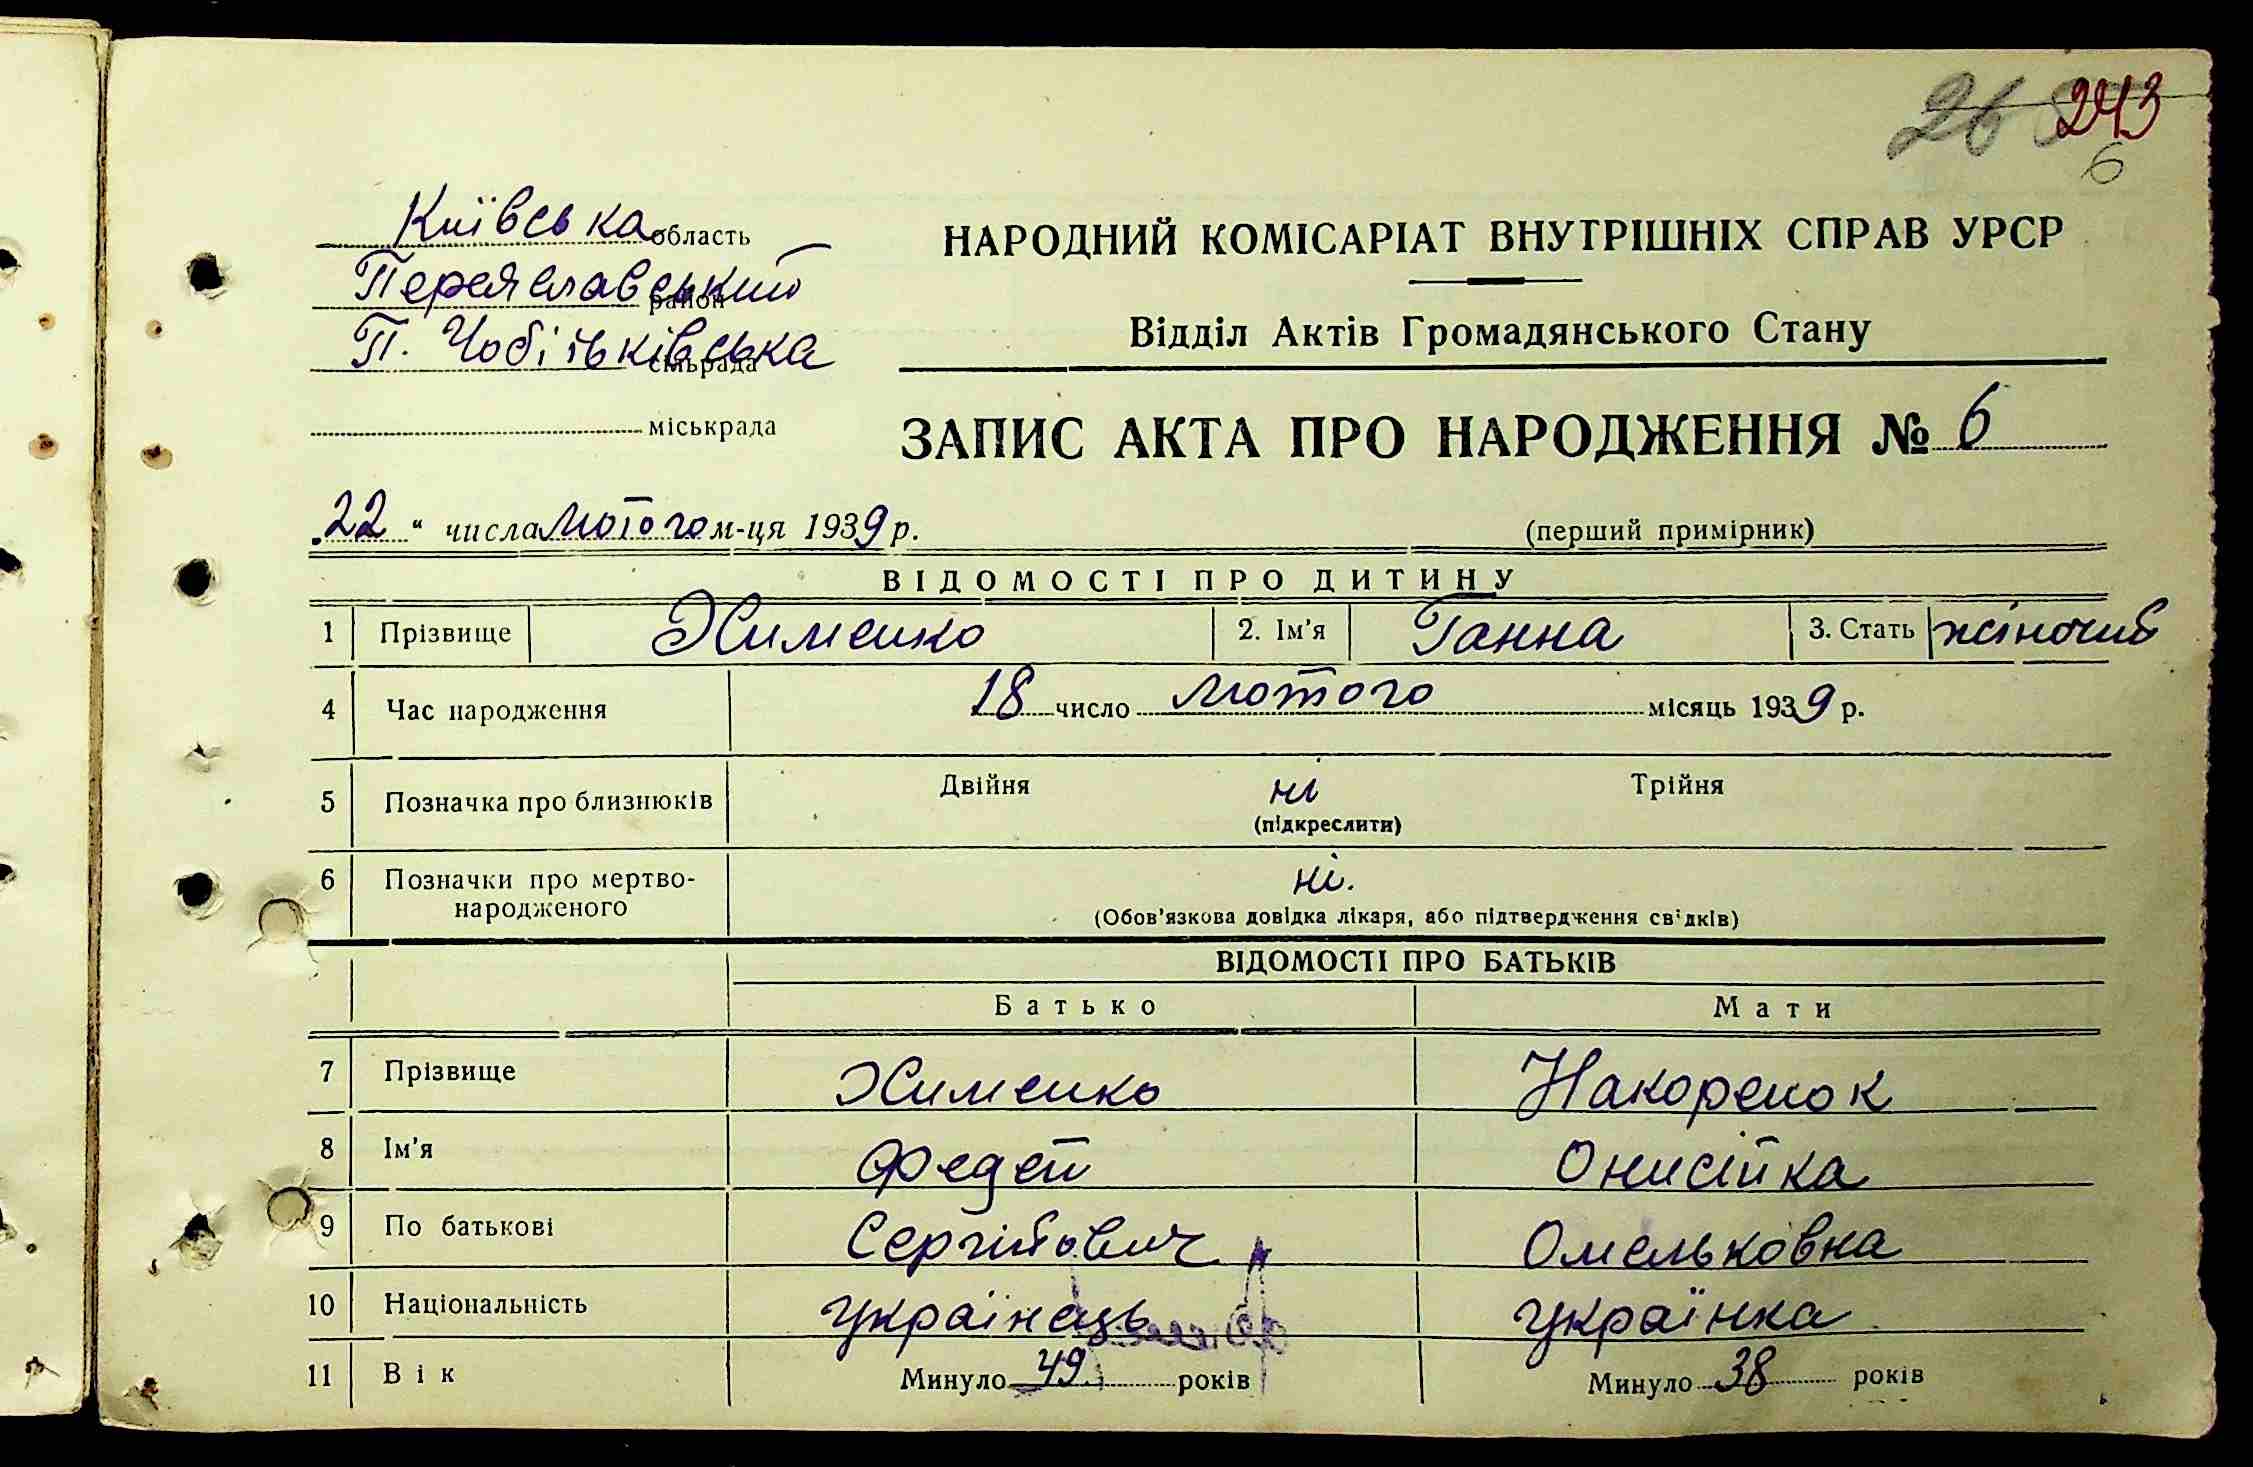 243
6
Київська область
Переяславський район
сільрада
міськрада
НАРОДНИЙ КОМІСАРІАТ ВНУТРІШНІХ СПРАВ УРСР
Відділ Актів Громадянського Стану
ЗАПИС АКТА ПРО НАРОДЖЕННЯ № 6
„22“ числа лютого м-ця 1939 р.
(перший примірник)
ВІДОМОСТІ ПРО ДИТИНУ
1 Прізвище Хименко 2. Ім'я Ганна 3. Стать
4 Час народження 18 число лютого місяць 1939 р.
5 Позначка про близнюків Двійня ні Трійня
(підкреслити)
6 Позначки про мертво-
народженого ні.
(Обов'язкова довідка лікаря, або підтвердження свідків)
ВІДОМОСТІ ПРО БАТЬКІВ
Батько Мати
7 Прізвище Хименко Накоренок
8 Ім'я Федей Онисійка
9 По батькові Сергійович Омельковна
10 Національність українець українка
11 Вік Минуло 49 років Минуло 38 років